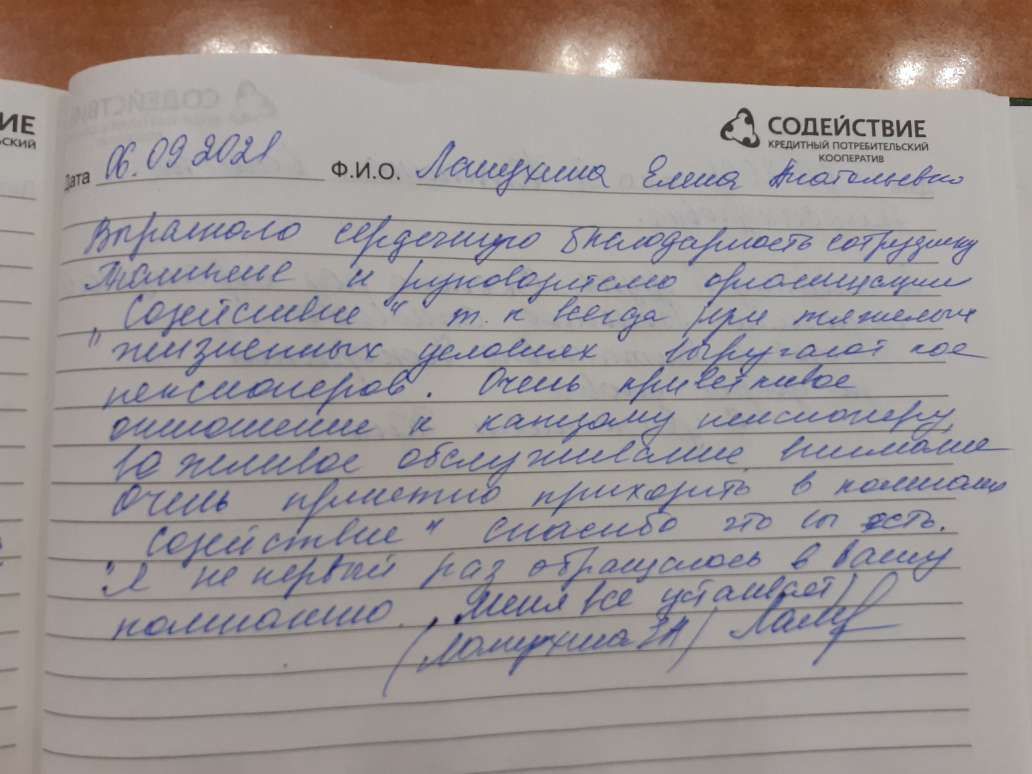 ИЕ
СКИЙ
СОДЕЙСТВИЕ
КРЕДИТНЫЙ ПОТРЕБИТЕЛЬСКИЙ
КООПЕРАТИВ
Дата 06.09.2021 Ф.И.О. Елена Анатольевна
Выражаю сердечную благодарность сотруднику
и руководителю организации
"Содействие" т.к всегда при тяжелых
жизненных условиях выручают нас
пенсионеров. Очень приветливое
отношение к каждому пенсионеру,
обслуживание, внимание
Очень приятно приходить в компанию
"Содействие" спасибо что вы есть.
Я не первый раз обращаюсь в вашу
компанию. Меня все устаивает